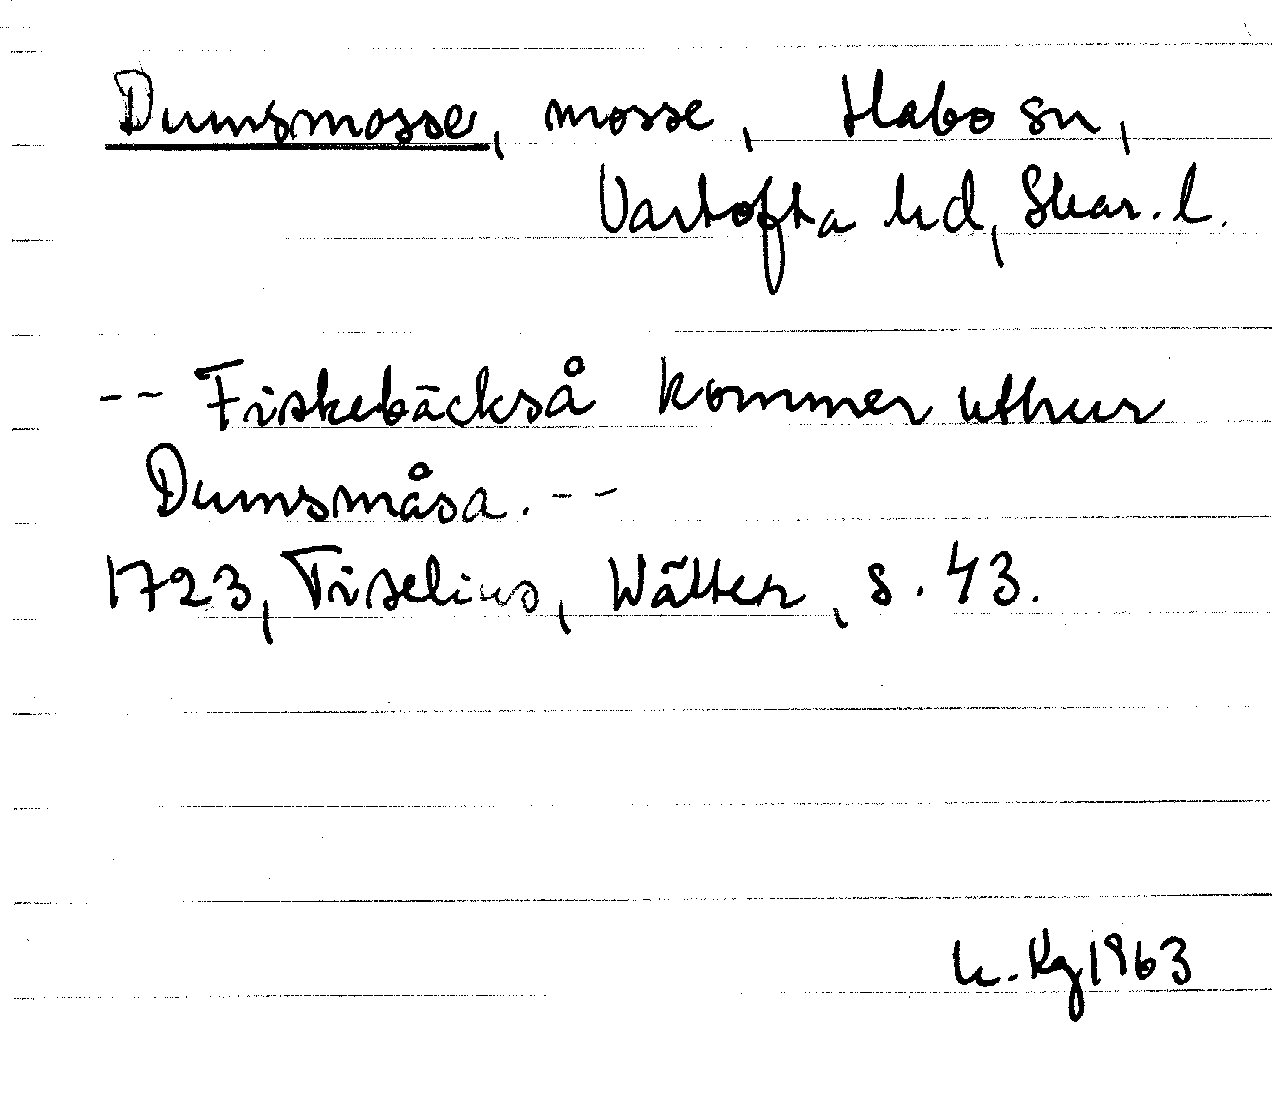 Dumsmosse, mosse, Habo sn,
Vartofta hd, Skar. l.
-- Fiskebäckså kommer uthur
Dumsmåsa. --
1723, Tiselius, Wätter, s. 43.
K. Kg 1963